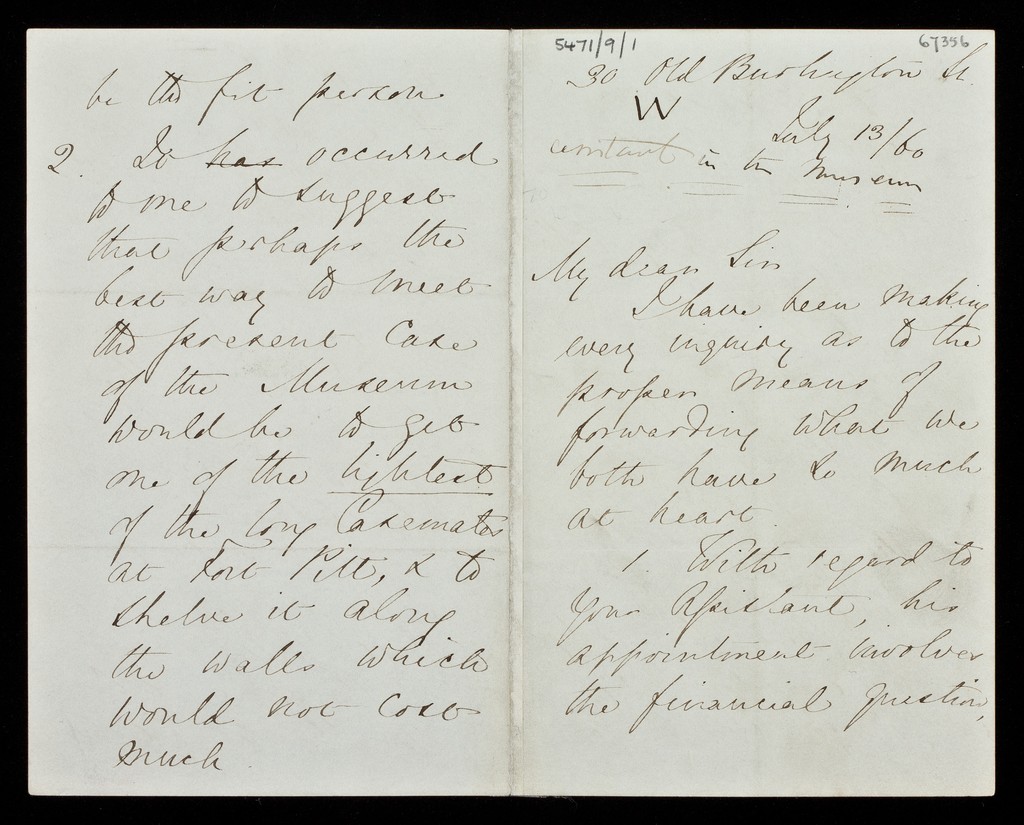 5471/9/1
67356
30 Old Burlington St.
W
July 13/60
in the Museum
My dear Sir
I have been making
every inquiry as to the
proper means of
forwarding what we
both have so much
at heart.
1. With regard to
your Assistant, his
appointment involves
the financial question,
be the fit person
2. It has occurred
to me to suggest
that perhaps the
best way to meet
the present Case
of the Museum
would be to get
one of the lightest
of the long Casemates
at Fort Pitt, & to
shelve it along
the walls which
would not cost
much